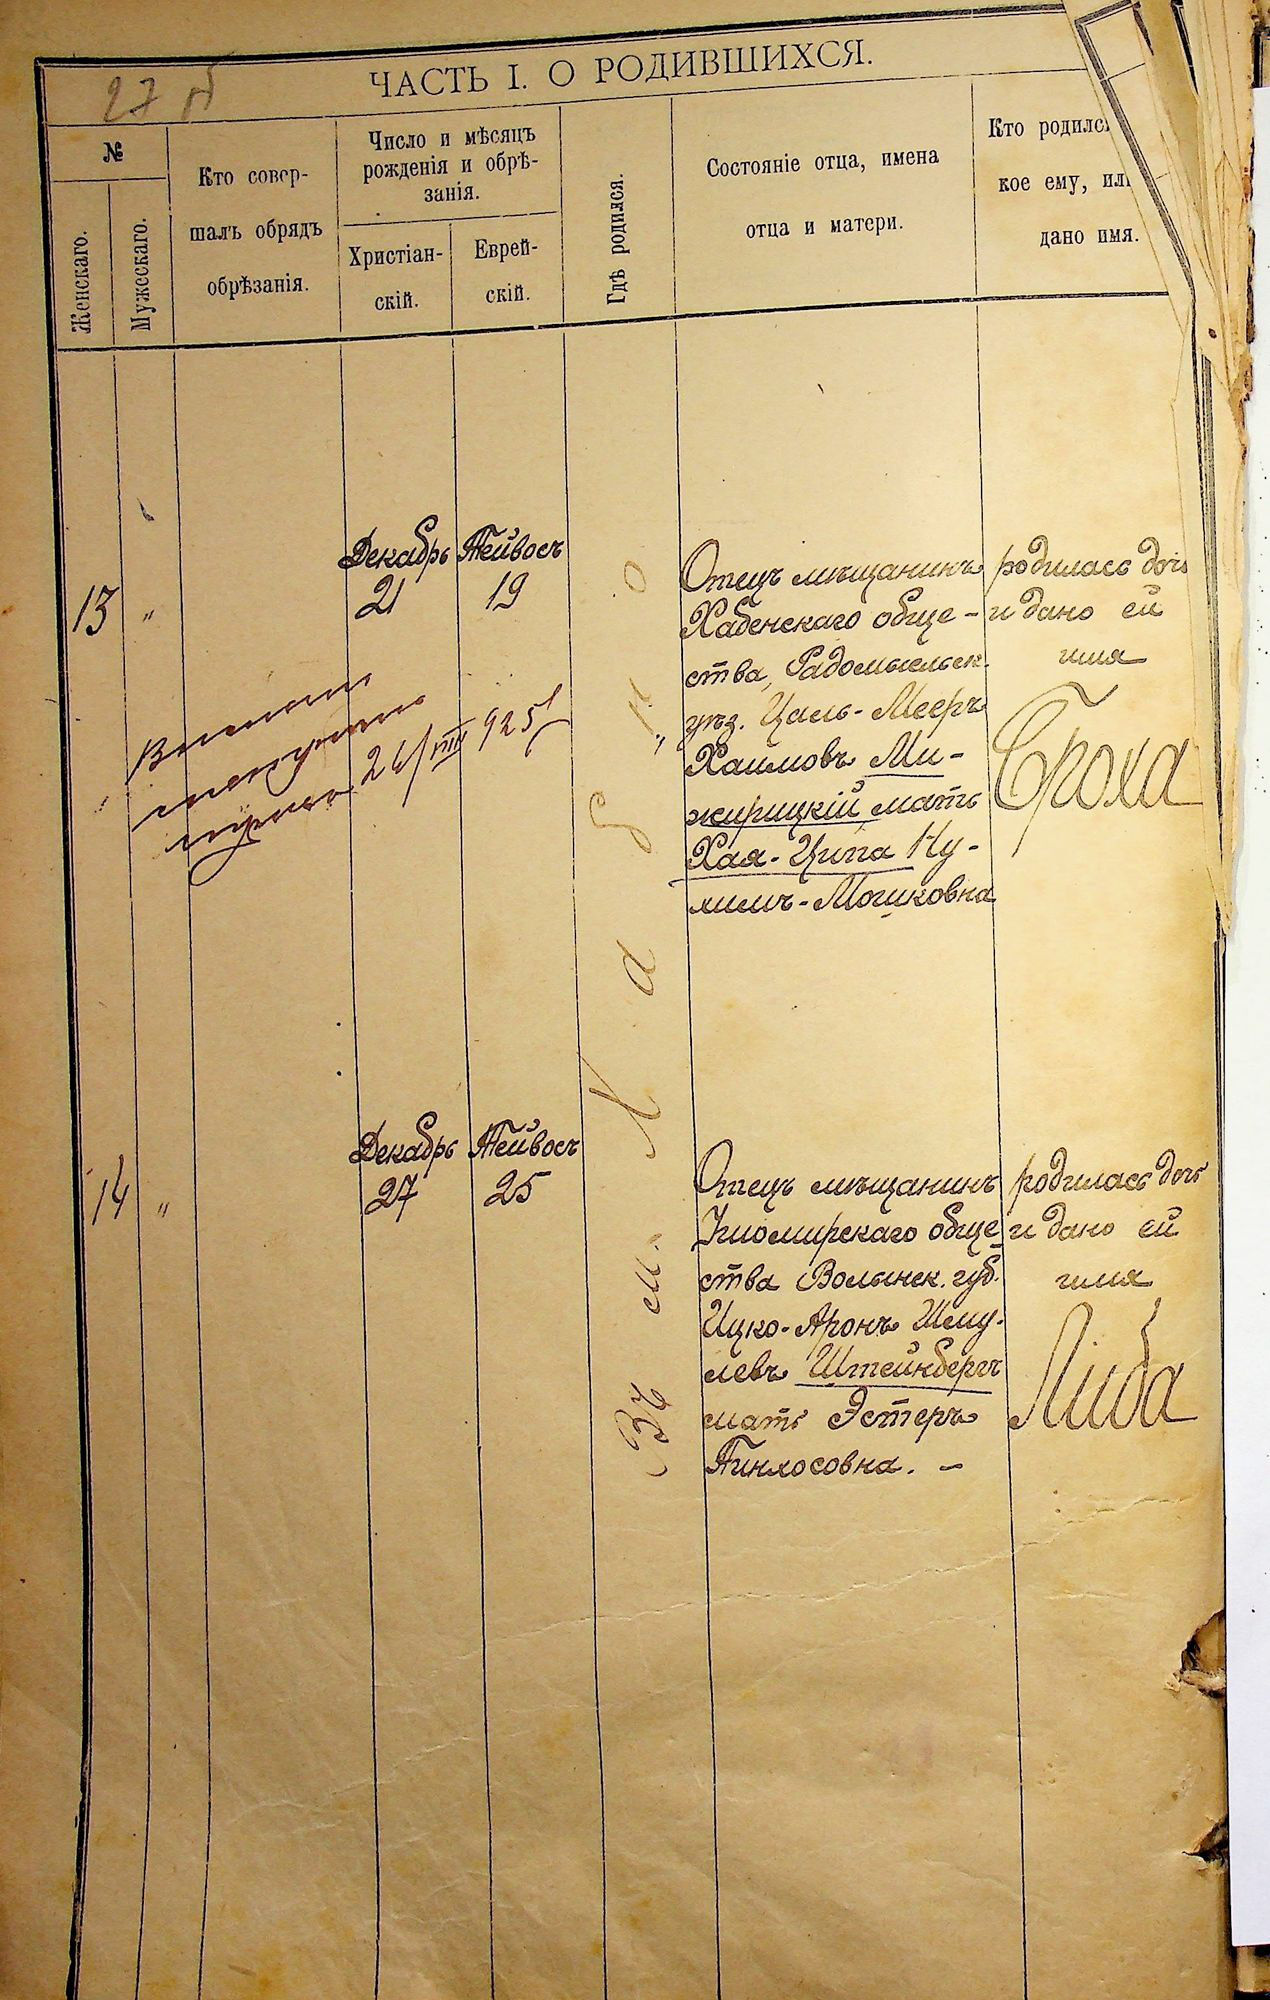 27
ЧАСТЬ I. О РОДИВШИХСЯ.
№
Женскаго.
Мужескаго.
Кто совер-
шалъ обрядъ
обрѣзанія.
Число и мѣсяцъ
рожденія и обрѣ-
занія.
Христіан-
скій.
Еврей-
скій.
Гдѣ родился.
Состояніе отца, имена
отца и матери.
Кто родился
кое ему, или
дано имя.
13
"
Декабрь
21
Тейвосъ
19
Отецъ мѣщанинъ
Хабенскаго обще-
ства, Радомысльск.
уѣз. Цаль-Мееръ
Хаимовъ Ми-
жирицкій мать
Хая-Ципа Ну-
химъ-Мошковна
родилась дочь
и дано ей
имя
Броха
26/VIII 925
Въ м. Хабно
14
"
Декабрь
27
Тейвосъ
25
Отецъ мѣщанинъ
Ушомирскаго обще-
ства Волынск. губ.
Ицко-Аронъ Шму-
левъ Штейнбергъ
мать Эстеръ
Пинхосовна. –
родилась дочь
и дано ей
имя
Либа